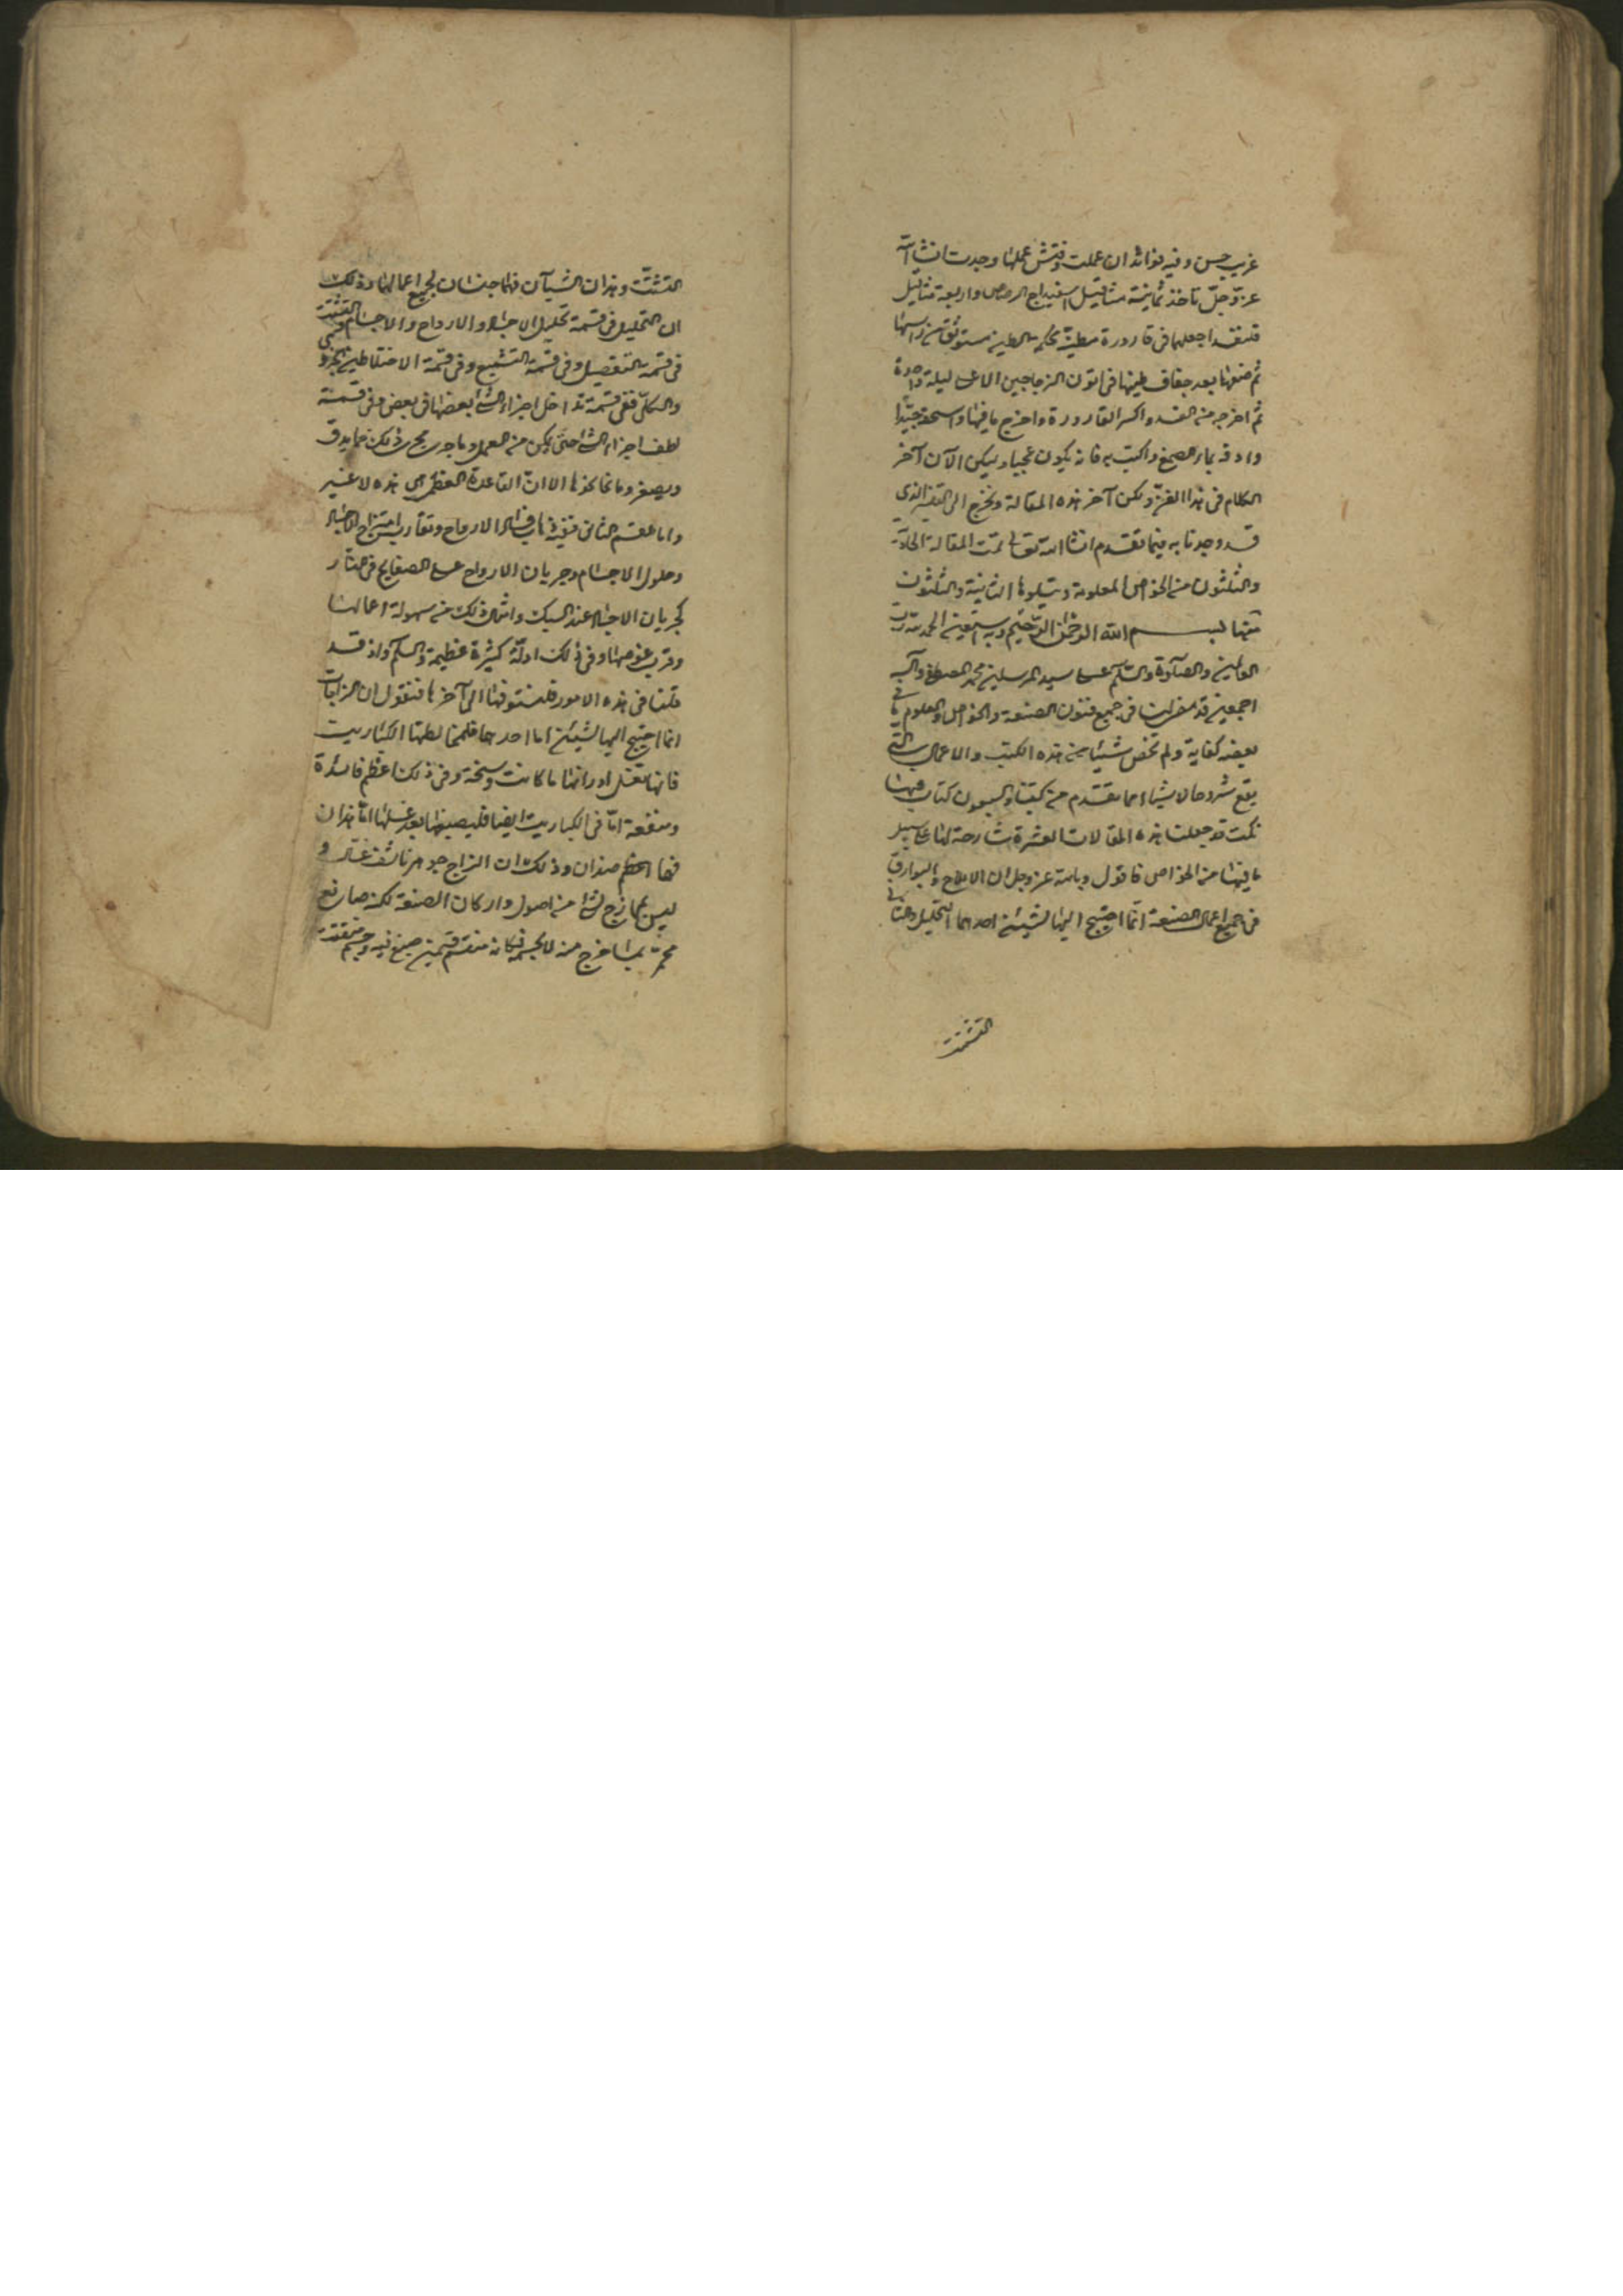 غريب حسن وفيه فوائد ان عملت وفتش عملها وجدت انشا الله
عز وجل تاخذ ثمانية مثاقيل اسفيداج الرصاص واربعة مثاقيل
قلقند اجعلهما في قارورة مطينة محكمة الطين مستوثق من راسها
ثم ضعها بعد جفاف طينها في اتون الزجاجين الاعلى ليلة واحدة
ثم اخرجه من الغد واكسر القارورة واخرج ما فيها واسحقه جيدا
وادفه بماء الصمغ واكتب به فانه يكون عجيبا وليكن الآن آخر
الكلام في هذا الفن وليكن آخر هذه المقالة ونخرج الى الفن الذي
قد وجدنا به فيما تقدم انشا الله تعالى تمت المقالة الحادية
والثلثون من الخواص المعلومة ويتلوها الثانية والثلثون
منها بسم الله الرحمن الرحيم وبه نستعين الحمد لله رب
العالمين والصلوة والسلم على سيد المرسلين محمد المصطفى وآله
اجمعين قد مضى لنا في جميع فنون الصنعة والخواص والعلوم ما في
بعضه كفاية ولم نخص شيئا من هذه الكتب والاعمال التي
يقع شروحا لاشياء مما تقدم من كتبنا والسبعون كتاب فيها
نكت قد جعلنا هذه المقالات العشرة شارحة لها على سبيل
ما فيها من الخواص فاقول وبالله عز وجل ان الاملاح والبوارق
في جميع اعمال الصنعة انما احتيج اليها لشيئين احدهما التحليل والثاني
التشتت
التشتت وهذان الشيآن فهما جنسان لجميع اعمالها وذلك
ان التحليل في قسمة تحليل الاجساد والارواح والاجسام والتشتت
في قسمة التفصيل وفي قسمة التشميع وفي قسمة الاختلاط الجزوي
والكلي ففي قسمة تداخل اجزاء الشئ بعضها في بعض وفي قسمة
لطف اجزاء الشئ حتى يمكن من العمل وما جرى مجرى ذلك فما يدق
ويصغر وما نحا نحوها الا ان القاعدة العظمى هي هذه لا غير
واما القسم الثاني ففيه الارواح وتقارب امتزاج الاجساد
وحلول الاجسام وجريان الارواح على الصفايح في النار
كجريان الاجساد عند السبك واشباه ذلك من سهولة اعمالها
وقرب غوصها وفي ذلك ادلة كثيرة عظيمة والسلم واذ قد
قلنا في هذه الامور فلنستوفها الى آخرها فنقول ان الزاجات
انما احتيج اليها لشيئين اما احدهما فلمخالطتها الكباريت
فانها تغسل اورانها ما كانت وسخة وفي ذلك اعظم فائدة
ومنفعة اما في الكباريت ايضا فليصبغها بعد غسلها اما هذان
فهما اعظم صنوان وذلك ان الزاج جوهر ناشف غسال و
ليس يمازج لشئ من اصول واركان الصنعة لكنه صابغ
محمر بما خرج منه للجسم فكانه منقسم قسمين صبغ فيه وجسم